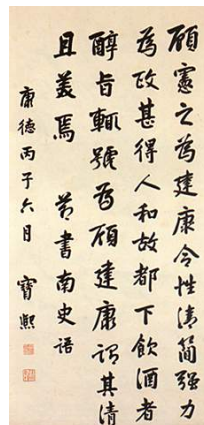 顧憲之為建康令性清簡强力
為政甚得人和故都下飲酒者
醇旨輒號為顧建康謂其清
且美焉 節書南史語
康德丙子六月 寶熙